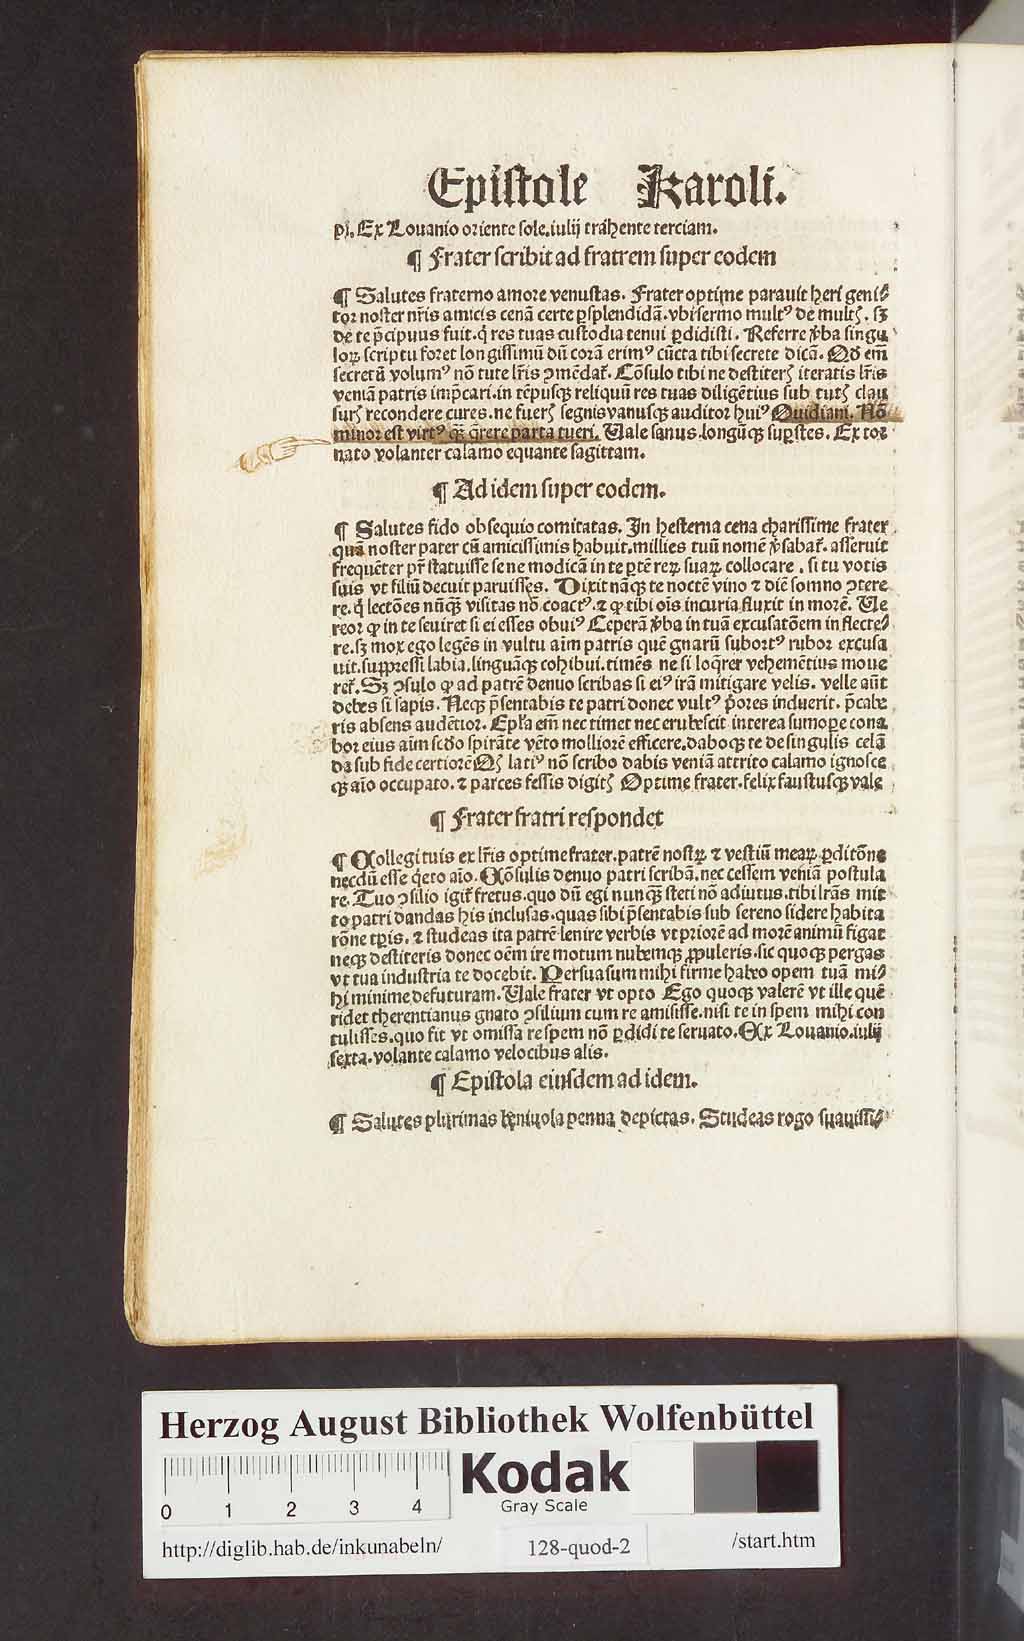 Epistole Karoli.
pꝭ. Ex Louanio oriente sole. iulij tráhente terciam.
¶ Frater scribit ad fratrem super eodem
¶ Salutes fraterno amore venustas. Frater optime parauit heri geni⸗
tor noster nr̄is amicis cenā certe ꝑsplendidā. vbi sermo multꝰ de multꝭ. sꝫ
de te p̄cipuus fuit. q̇ res tuas custodia tenui ꝑdidisti. Referre v̓ba singu
loꝝ scriptu foret longissimū dū corā erimꝰ cūcta tibi secrete dicā. Qd̓ em̄
secretū volumꝰ nō tute lr̄is ɔmēdat᷑. Cōsulo tibi ne destiterꝭ iteratis lr̄is
veniā patris imp̄cari. in tēpusqꝫ reliquū res tuas diligētius sub tutꝭ clau
surꝭ recondere cures. ne fuerꝭ segnis vanusqꝫ auditor huiꝰ Ouidiani. Nō
minor est virtꝰ qꝫ̄ q̄rere parta tueri. Uale sanus. longūqꝫ suꝑstes. Ex tor
nato volanter calamo equante sagittam.
¶ Ad idem super eodem.
¶ Salutes fido obsequio comitatas. In hesterna cena charissime frater
quā noster pater cū amicissimis habuit. millies tuū nomē v̓sabat᷑. asseruit
frequēter pr̄ statuisse se ne modicā in te ꝑtē reꝝ suaꝝ collocare. si tu votis
suis vt filiū decuit paruisses. Dixit nāqꝫ te noctē vino ⁊ diē somno ɔtere
re. q̇ lectōes nūqꝫ̄ visitas nō coactꝰ. ⁊ ꝙ tibi oīs incuria fluxit in morē. Ue
reor ꝙ in te seuiret si ei esses obuiꝰ Ceperā v̓ba in tuā excusatōem inflecte⸗
re. sꝫ mox ego legēs in vultu aīm patris quē gnarū subortꝰ rubor excusa
uit. suppressi labia. linguāqꝫ cohibui. timēs ne si loq̄rer vehemētius moue
ret᷑. Sꝫ ɔsulo ꝙ ad patrē denuo scribas si eiꝰ irā mitigare velis. velle aūt
debes si sapis. Neqꝫ p̄sentabis te patri donec vultꝰ p̓ores induerit. p̄cabe
ris absens audētior. Ep̄la em̄ nec timet nec erubescit interea sumoꝑe cona
bor eius aīm scd̓o spirāte vēto molliorē efficere. daboqꝫ te de singulis celā
da sub fide certiorē Qꝭ latiꝰ nō scribo dabis veniā attrito calamo ignosce
qꝫ aīo occupato. ⁊ parces fessis digitꝭ Optime frater. felix faustusqꝫ vale
¶ Frater fratri respondet
¶ Collegi tuis ex lr̄is optime frater. patrē nostꝝ ⁊ vestiū meaꝝ ꝑditōne
necdū esse q̇eto aīo. Cōsulis denuo patri scribā. nec cessem veniā postula
re. Tuo ɔsilio igit᷑ fretus. quo dū egi nunqꝫ̄ steti nō adiutus. tibi lr̄as mit
to patri dandas his inclusas. quas sibi p̄sentabis sub sereno sidere habita
rōne tꝑis. ⁊ studeas ita patrē lenire verbis vt priorē ad morē animū figat
neqꝫ destiteris donec oēm ire motum nubemqꝫ ꝓpuleris. sic quoqꝫ pergas
vt tua industria te docebit. Persuasum mihi firme habeo opem tuā mi⸗
hi minime defuturam. Uale frater vt opto Ego quoqꝫ valerē vt ille quē
ridet therentianus gnato ɔsilium cum re amisisse. nisi te in spem mihi con
tulisses. quo fit vt omissa re spem nō ꝑdidi te seruato. Ex Louanio. iulij
sexta. volante calamo velocibus alis.
¶ Epistola eiusdem ad idem.
¶ Salutes plurimas beniuola penna depictas. Studeas rogo suauissi⸗
Herzog August Bibliothek Wolfenbüttel
0 1 2 3 4
Kodak
Gray Scale
http://diglib.hab.de/inkunabeln/ 128-quod-2 /start.htm